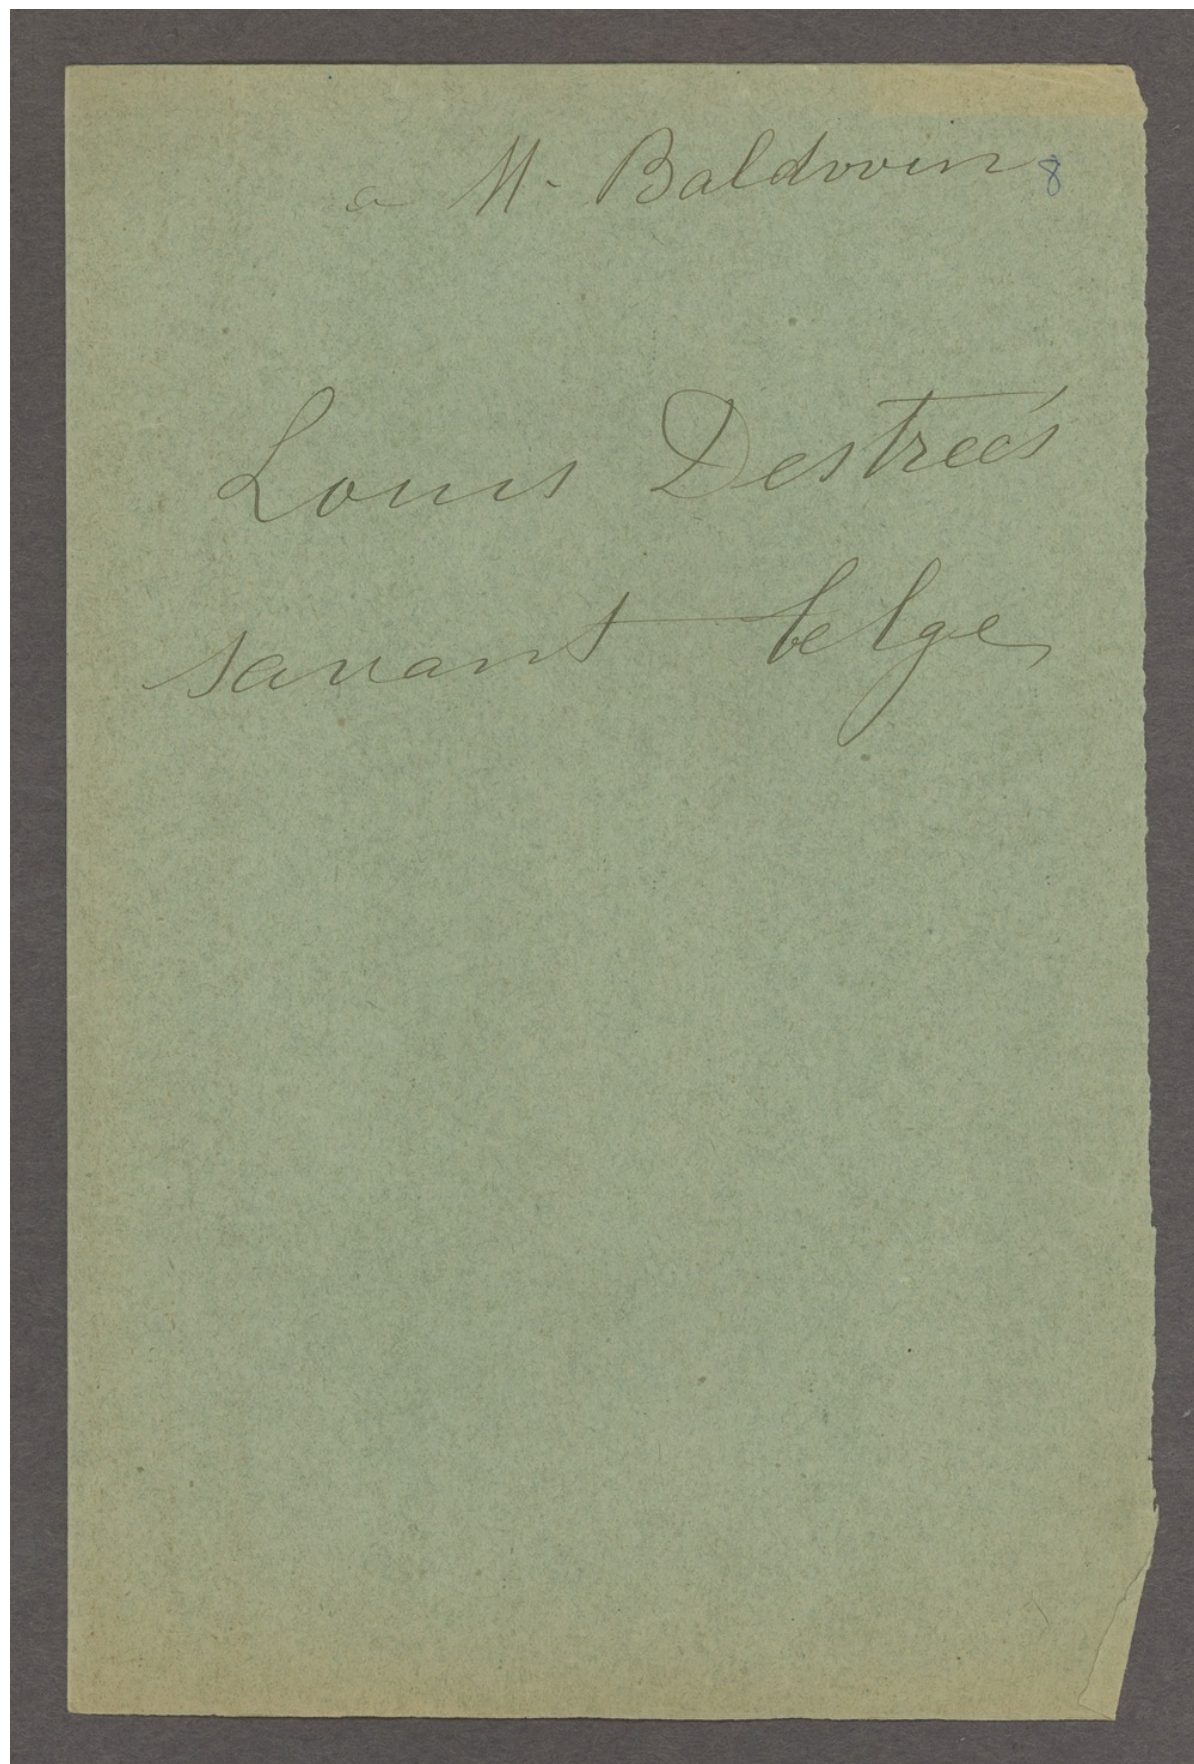 a M. Baldwin 8
Louis Destreés
savant belge